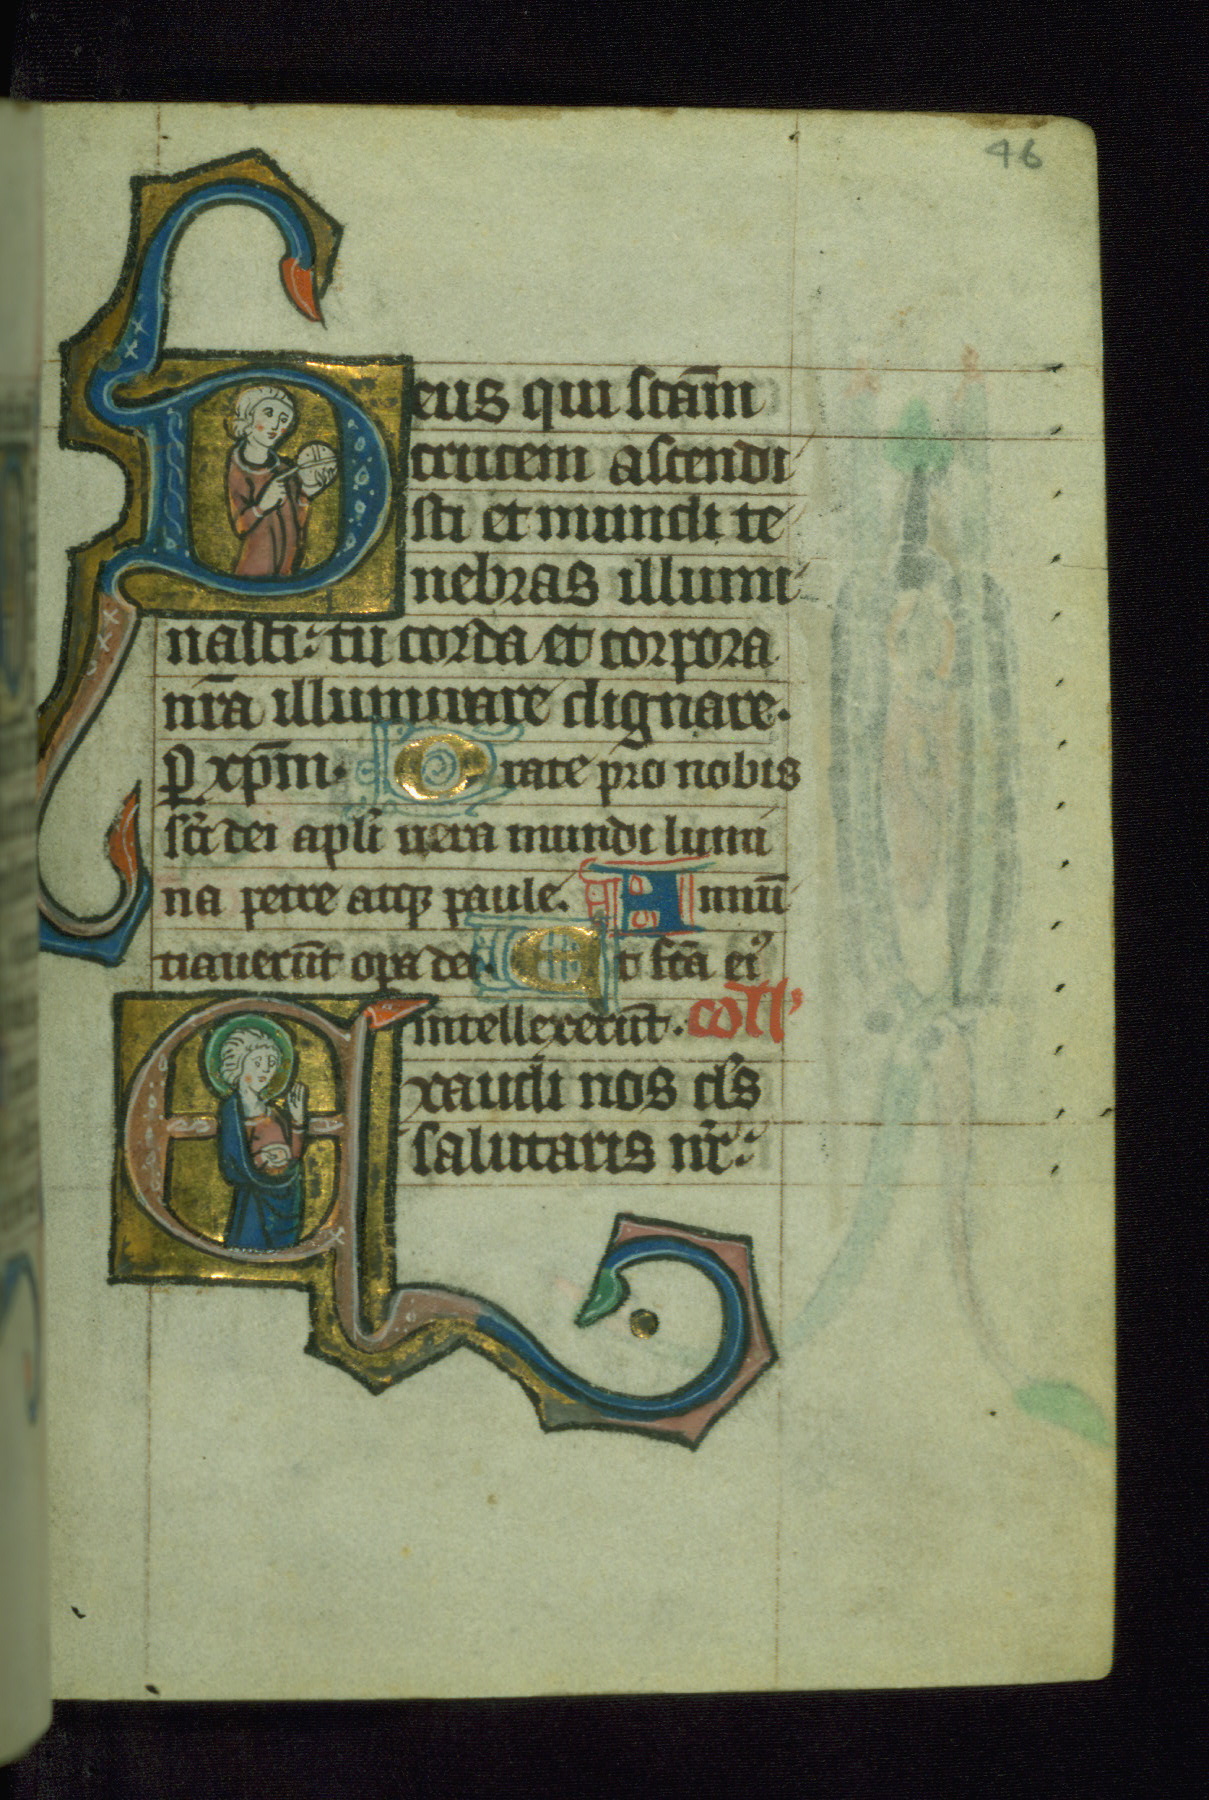 46
Deus qui sc̄am
crucem ascendi
sti et mundi te
nebras illumi
nasti: tu corda et corpora
nr̄a illuminare dignare.
ꝑ xp̄m. Orate pro nobis
sc̄i dei apl̄i uera mundi lumi
na petre atqꝫ paule. Annū
tiauerūt oꝑa dei. Et fc̄a eiꝰ
intellexerūt. coll'
Exaudi nos ds̄
salutaris nr̄: